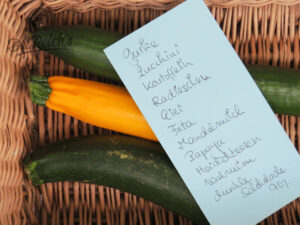 Gurke
Zucchini
Kartoffeln
Radieschen
Eier
Feta
Mandelmilch
Papaya
Heidelbeeren
Walnüsse
dunkle Schokolade
70%